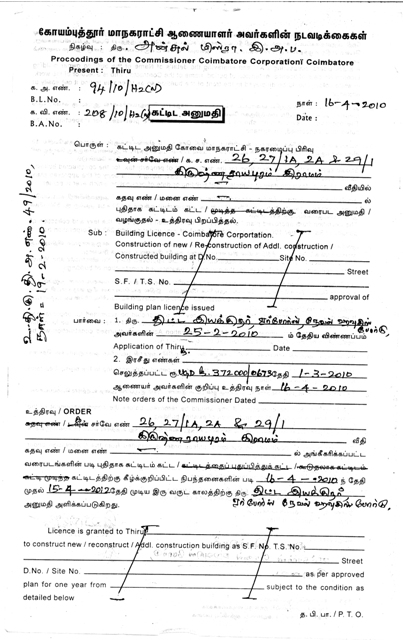 கோயம்புத்தூர் மாநகராட்சி ஆணையாளர் அவர்களின் நடவடிக்கைகள்
நிகழ்வு : திரு. அன்சுல் மிஸ்ரா. இ.அ.ப.
Procoodings of the Commissioner Coimbatore Corporation Coimbatore
Present : Thiru
க. அ. எண். : 94/10/H2(N)
B.L.No. :
நாள் : 16-4-2010
க. வி. எண். : 208/10/H2(N) கட்டிட அனுமதி
Date :
B.A.No. :
பொருள் : கட்டிட அனுமதி கோவை மாநகராட்சி - நகரமைப்பு பிரிவு
டவுன் சர்வே எண் / க. ச. எண். 26, 27/1A, 2A & 29/1
கிருஷ்ணராயபுரம் கிராமம் வீதியில்
கதவு எண் / மனை எண் ல்
புதிதாக கட்டிடம் கட்ட / முடித்த கட்டிடத்திற்கு வரைபட அனுமதி /
வழங்குதல் - உத்திரவு பிறப்பித்தல்.
Sub : Building Licence - Coimbatore Corportation.
Construction of new / Re-construction of Addl. construction /
Constructed building at D.No. Site No.
Street
S.F. / T.S. No.
approval of
Building plan licence issued
பார்வை : 1. திரு. திட்ட இயக்குநர், ஏர்போர்ஸ் நேவல் ஹவுசிங் போர்டு,
அவர்களின் 25-2-2010 ம் தேதிய விண்ணப்பம்
Application of Thiru. Date
2. இரசீது எண்கள்
செலுத்தப்பட்ட ரூ. 372000/0673 தேதி 1-3-2010
ஆணையர் அவர்களின் குறிப்பு உத்திரவு நாள் 16-4-2010
Note orders of the Commissioner Dated
உ.தி.கு.தி.அ.எண். 49/2010,
நாள் = 19-2-2010.
உத்திரவு / ORDER
கதவு எண் / டவுன் சர்வே எண் 26, 27/1A, 2A & 29/1
கிருஷ்ணராயபுரம் கிராமம் வீதி
கதவு எண் / மனை எண் ல் அங்கீகரிக்கப்பட்ட
வரைபடங்களின் படி புதிதாக கட்டிடம் கட்ட / கட்டிடத்தைப் புதுப்பித்துக் கட்ட / கூடுதலாக கட்டிடம்
கட்டி முடித்த கட்டிடத்திற்கு கீழ்க்குறிப்பிட்ட நிபந்தனைகளின் படி 16-4-2010 ந் தேதி
முதல் 15-4-2012 தேதி முடிய இரு வருட காலத்திற்கு திரு. திட்ட இயக்குநர்
அனுமதி அளிக்கப்படுகிறது. ஏர்போர்ஸ் நேவல் ஹவுசிங் போர்டு,
Licence is granted to Thiru
to construct new / reconstruct / Addl. construction building as S.F. No. T.S. No.
Street
D.No. / Site No. as per approved
plan for one year from subject to the condition as
detailed below
த. பி. பா. / P. T. O.